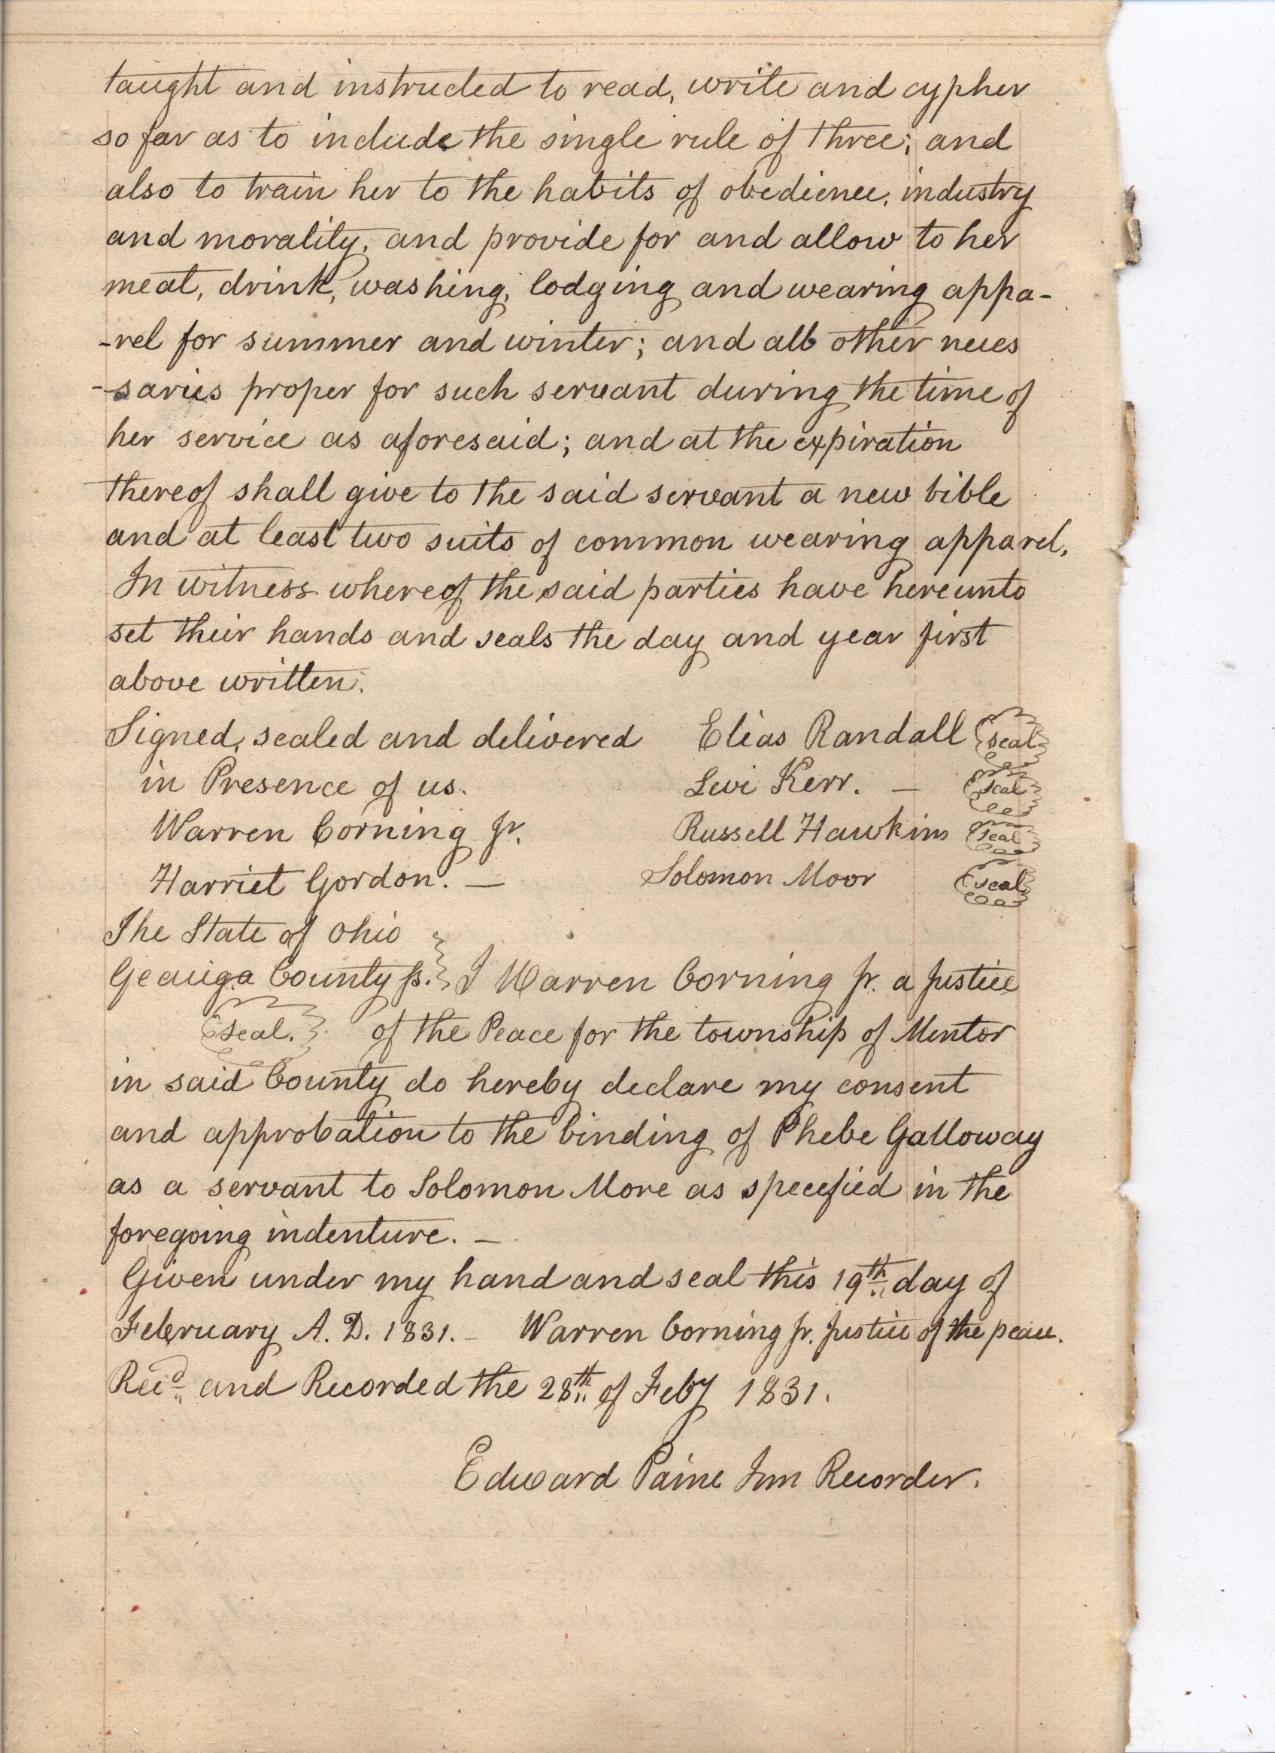 taught and instructed to read, write and cypher
so far as to include the single rule of three; and
also to train her to the habits of obedience, industry
and morality, and provide for and allow to her
meat, drink, washing, lodging and wearing appa-
-rel for summer and winter; and all other neces
-saries proper for such servant during the time of
her service as aforesaid; and at the expiration
thereof shall give to the said servant a new bible
and at least two suits of common wearing apparel,
In witness whereof the said parties have hereunto
set their hands and seals the day and year first
above written.
Signed, sealed and delivered Elias Randall seal
in Presence of us. Levi Kerr. — seal
Warren Corning Jr. Russell Hawkins seal
Harriet Gordon. — Solomon Moor seal
The State of Ohio
Geauga County ss. } I Warren Corning Jr. a Justice
Seal. of the Peace for the township of Mentor
in said County do hereby declare my consent
and approbation to the binding of Phebe Galloway
as a servant to Solomon More as specefied in the
foregoing indenture. —
Given under my hand and seal this 19th day of
February A. D. 1831. — Warren Corning Jr. Justice of the peace.
Recd and Recorded the 28th of Feby 1831.
Edward Paine Jun Recorder.